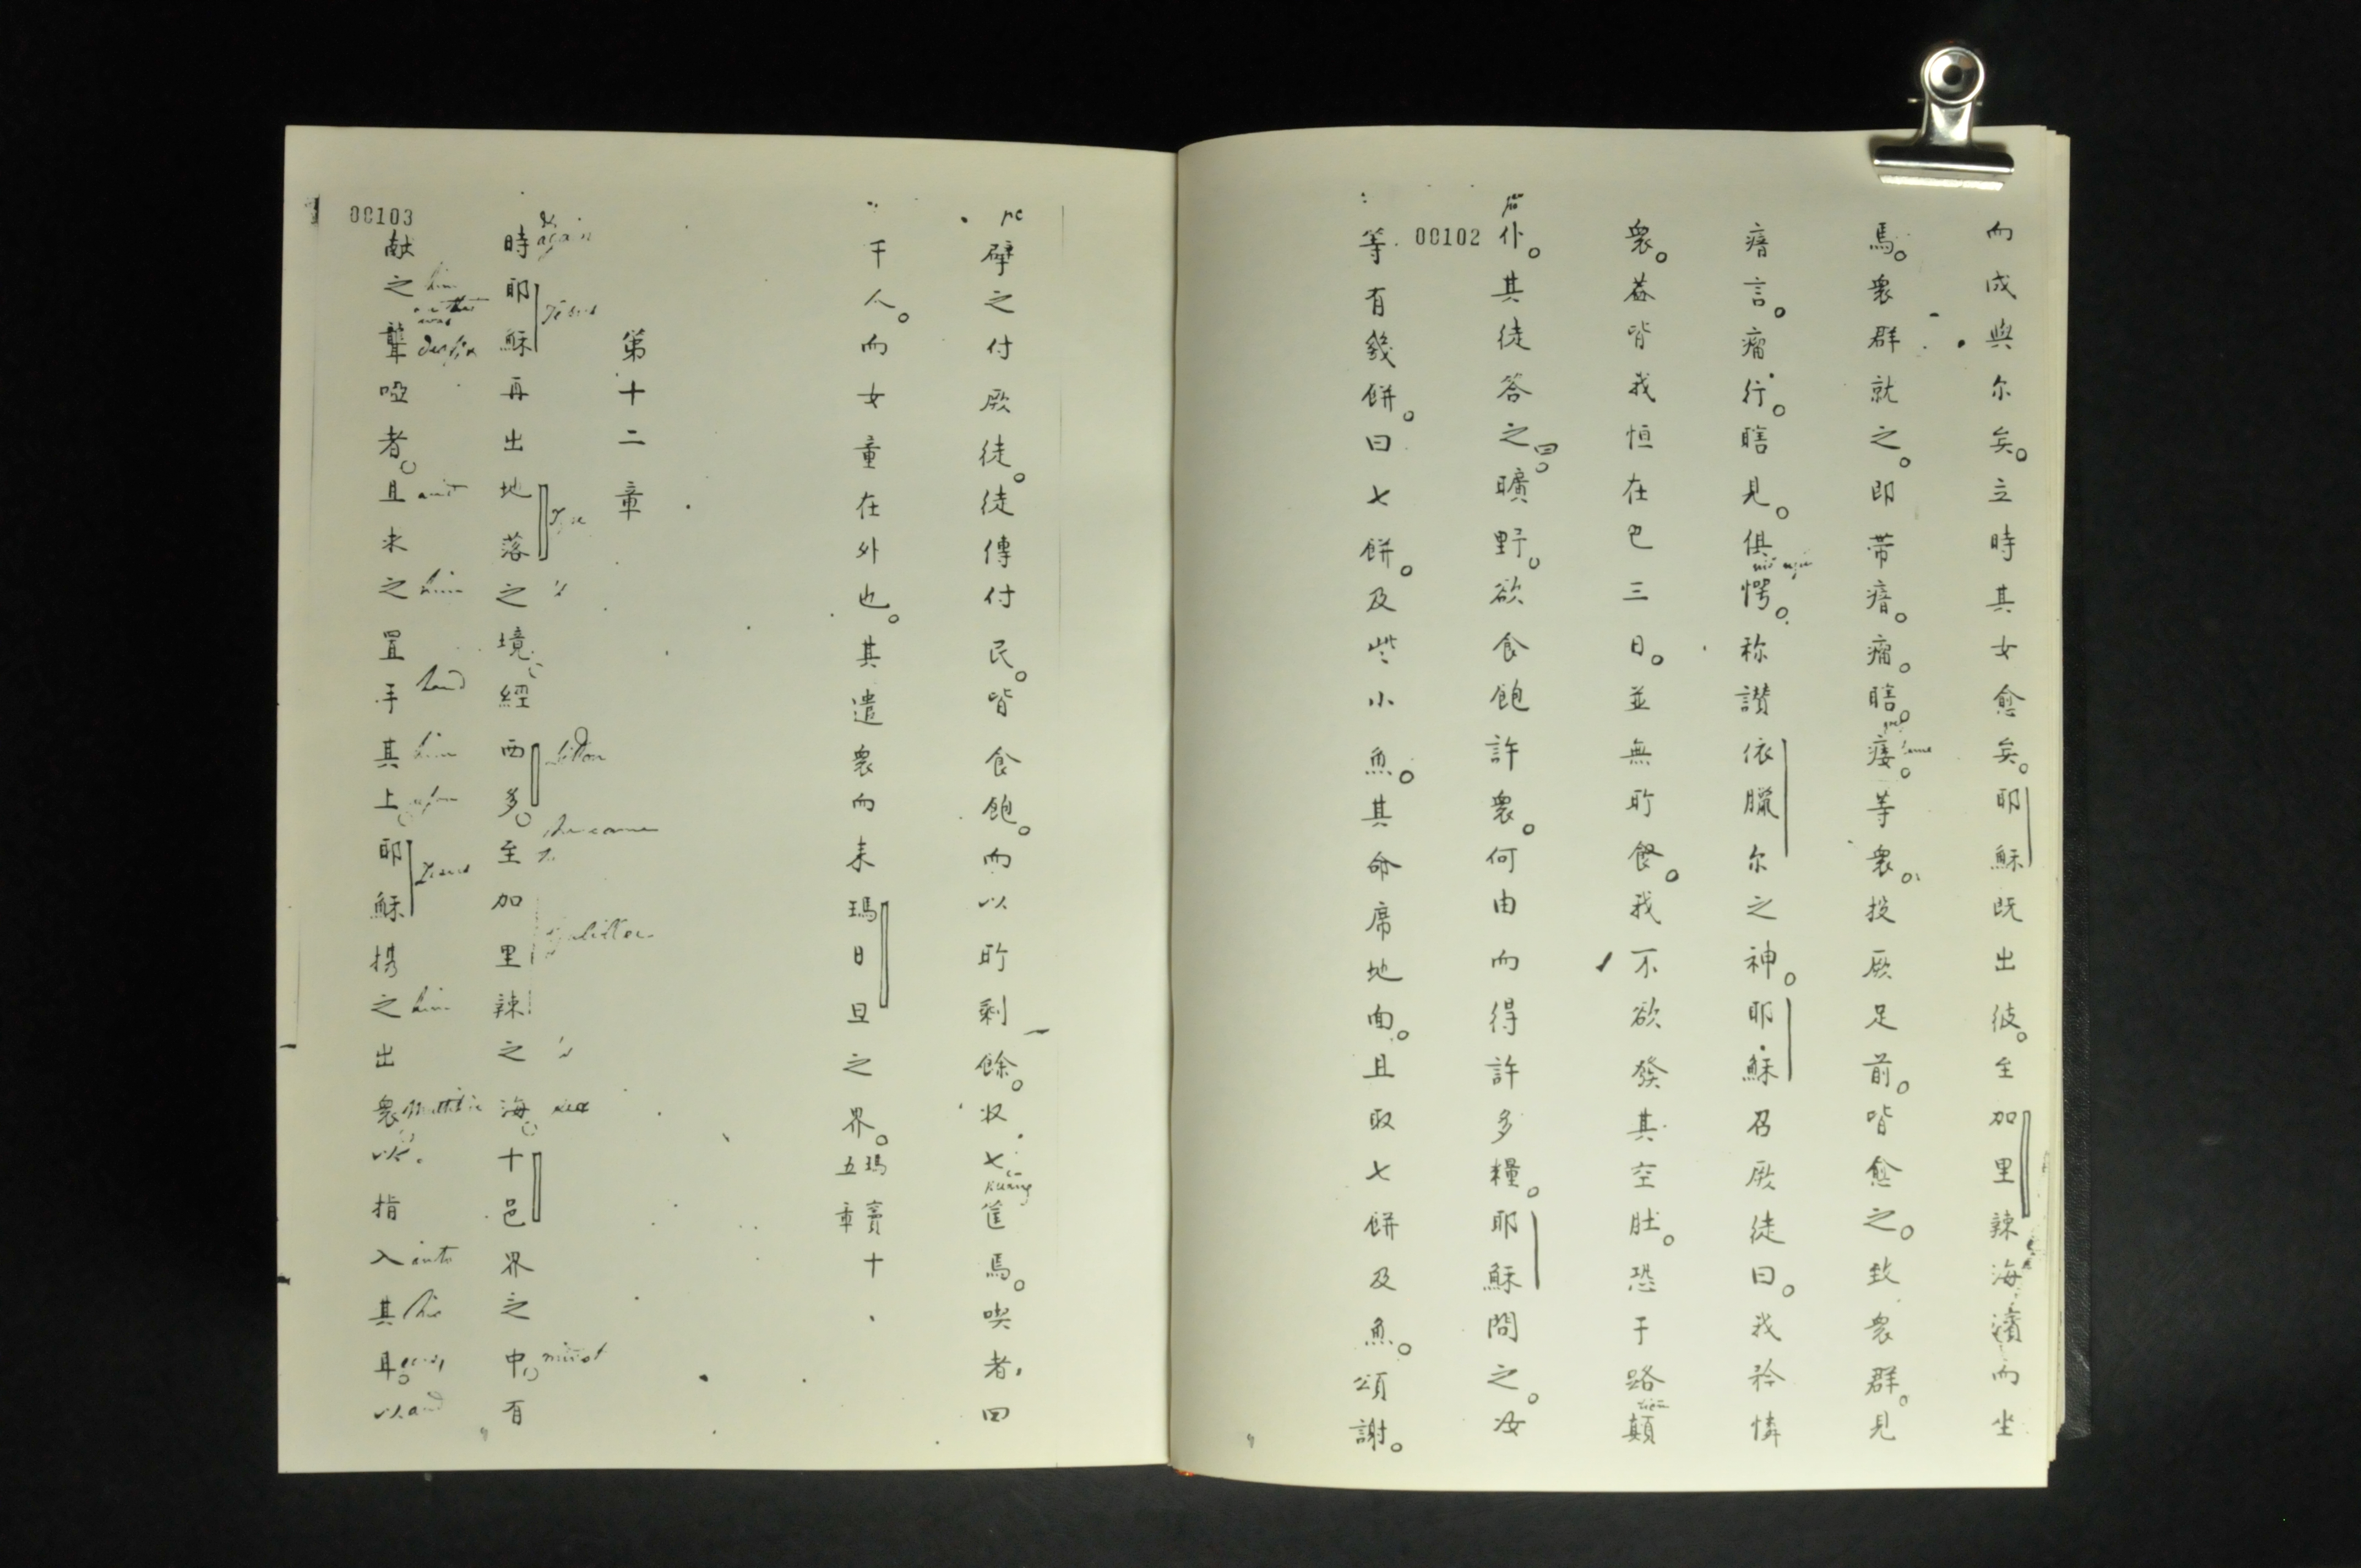 而成與尔矣。立時其女愈矣。耶穌既出彼。至加里辣海濱而坐
馬。衆群就之。即带瘖。瘸。瞎。痿。等衆。投厥足前。皆愈之。致衆群。見
瘖言。瘸行。瞎見。俱愕。称讃依臘尔之神。耶穌召厥徒曰。我矜憐
衆。葢皆我恒在已三日。並無所餐。我不欲發其空肚。恐于路顛
仆。其徒答之曰。曠野。欲食飽許衆。何由而得許多糧。耶穌問之。汝
00102
等有幾餅。曰七餅。及些小魚。其命席地面。且取七餅及魚。頌謝。
擘之付厥徒。徒傳付民。皆食飽。而以所剩餘。収七筐馬。喫者，四
kuang
千人。而女童在外也。其遣衆而来瑪日旦之界。瑪竇十五章
第十二章
時耶穌再出地落之境。經西多。至加里辣之海。十邑界之中。有
again
Jesus
Tyre
's
Sidon
he came to
Galilee
's
sea
midst
00103
献之聾啞者。且求之置手其上。耶穌携之出衆以指入其耳。以
him
deaf
and
him
hand
him
upon
Jesus
him
Multitude
into
his
ears
and